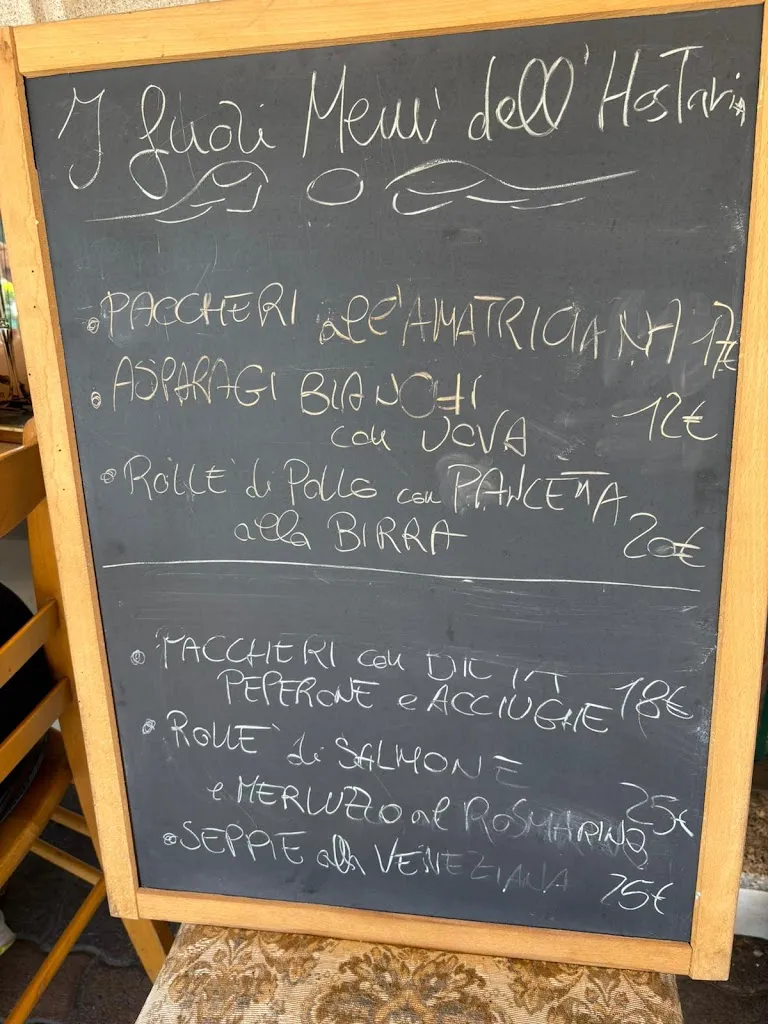 I fuori Menù dell'Hostaria
• PACCHERI all'AMATRICIANA 17€
• ASPARAGI BIANCHI
con UOVA 12€
• ROLLE' di POLLO con PANCETTA
alla BIRRA 20€
• PACCHERI con
PEPERONE e ACCIUGHE 18€
• ROLLE' di SALMONE
e MERLUZZO al ROSMARINO 25€
• SEPPIE alla VENEZIANA 25€